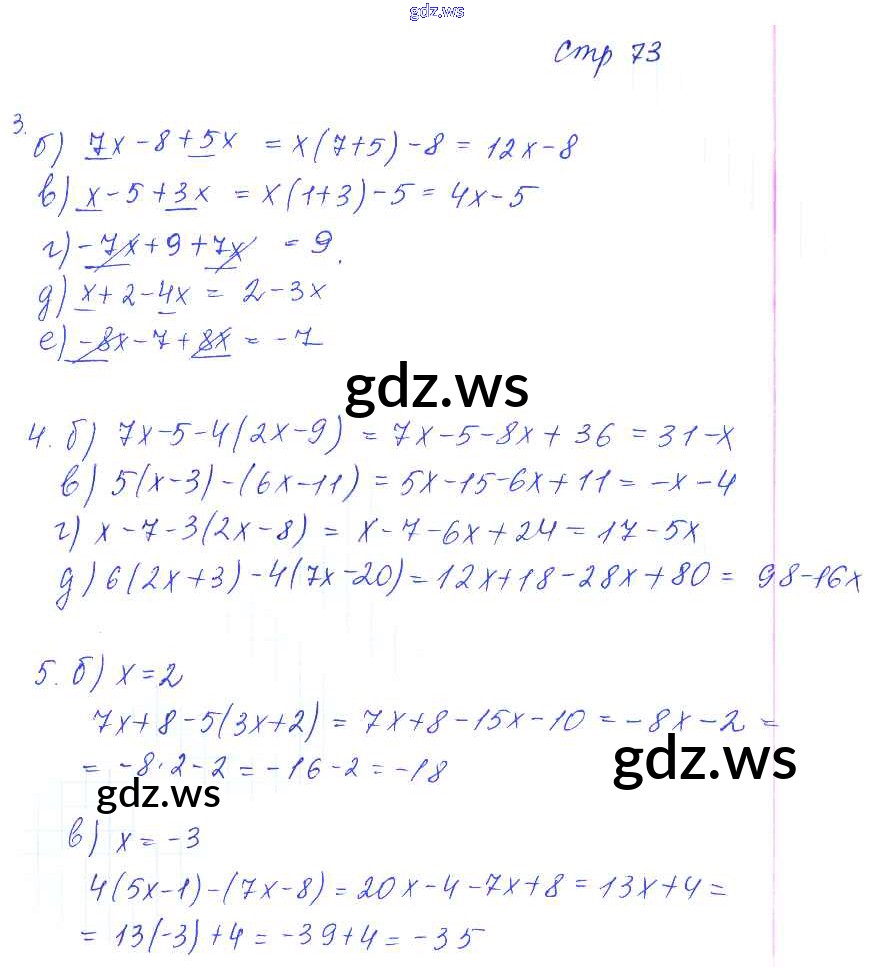 gdz.ws
Стр 73
3.
б) 7x - 8 + 5x = x(7+5) - 8 = 12x - 8
в) x - 5 + 3x = x(1+3) - 5 = 4x - 5
г) -7x + 9 + 7x = 9.
д) x + 2 - 4x = 2 - 3x
е) -8x - 7 + 8x = -7
gdz.ws
4. б) 7x - 5 - 4(2x - 9) = 7x - 5 - 8x + 36 = 31 - x
в) 5(x - 3) - (6x - 11) = 5x - 15 - 6x + 11 = -x - 4
г) x - 7 - 3(2x - 8) = x - 7 - 6x + 24 = 17 - 5x
д) 6(2x + 3) - 4(7x - 20) = 12x + 18 - 28x + 80 = 98 - 16x
5. б) x = 2
7x + 8 - 5(3x + 2) = 7x + 8 - 15x - 10 = -8x - 2 =
= -8 · 2 - 2 = -16 - 2 = -18
gdz.ws
gdz.ws
в) x = -3
4(5x - 1) - (7x - 8) = 20x - 4 - 7x + 8 = 13x + 4 =
= 13(-3) + 4 = -39 + 4 = -35